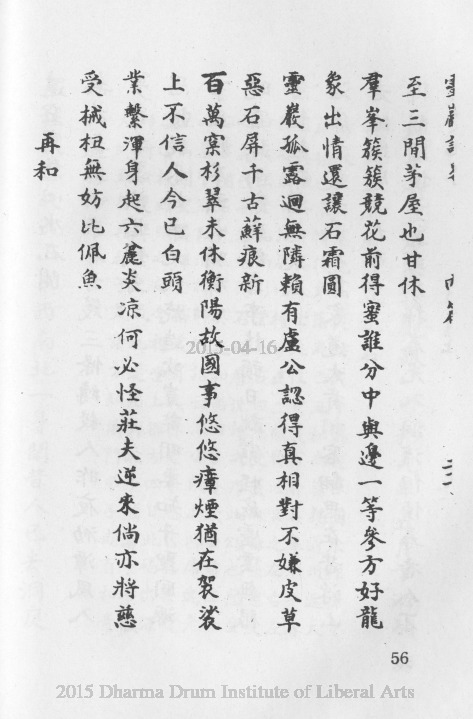 至三間茅屋也甘休
羣峯簇簇競花前得蜜誰分中與邊一等參方好龍
象出情還讓石霜圓
靈巖孤露迥無隣賴有盧公認得真相對不嫌皮草
惡石屏千古蘚痕新
百萬窠杉翠未休衡陽故國事悠悠瘴煙猶在袈裟
上不信人今已白頭
業繫渾身起六麄炎凉何必怪莊夫逆來倘亦將慈
受械杻無妨比佩魚
再和
2015-04-16
56
2015 Dharma Drum Institute of Liberal Arts